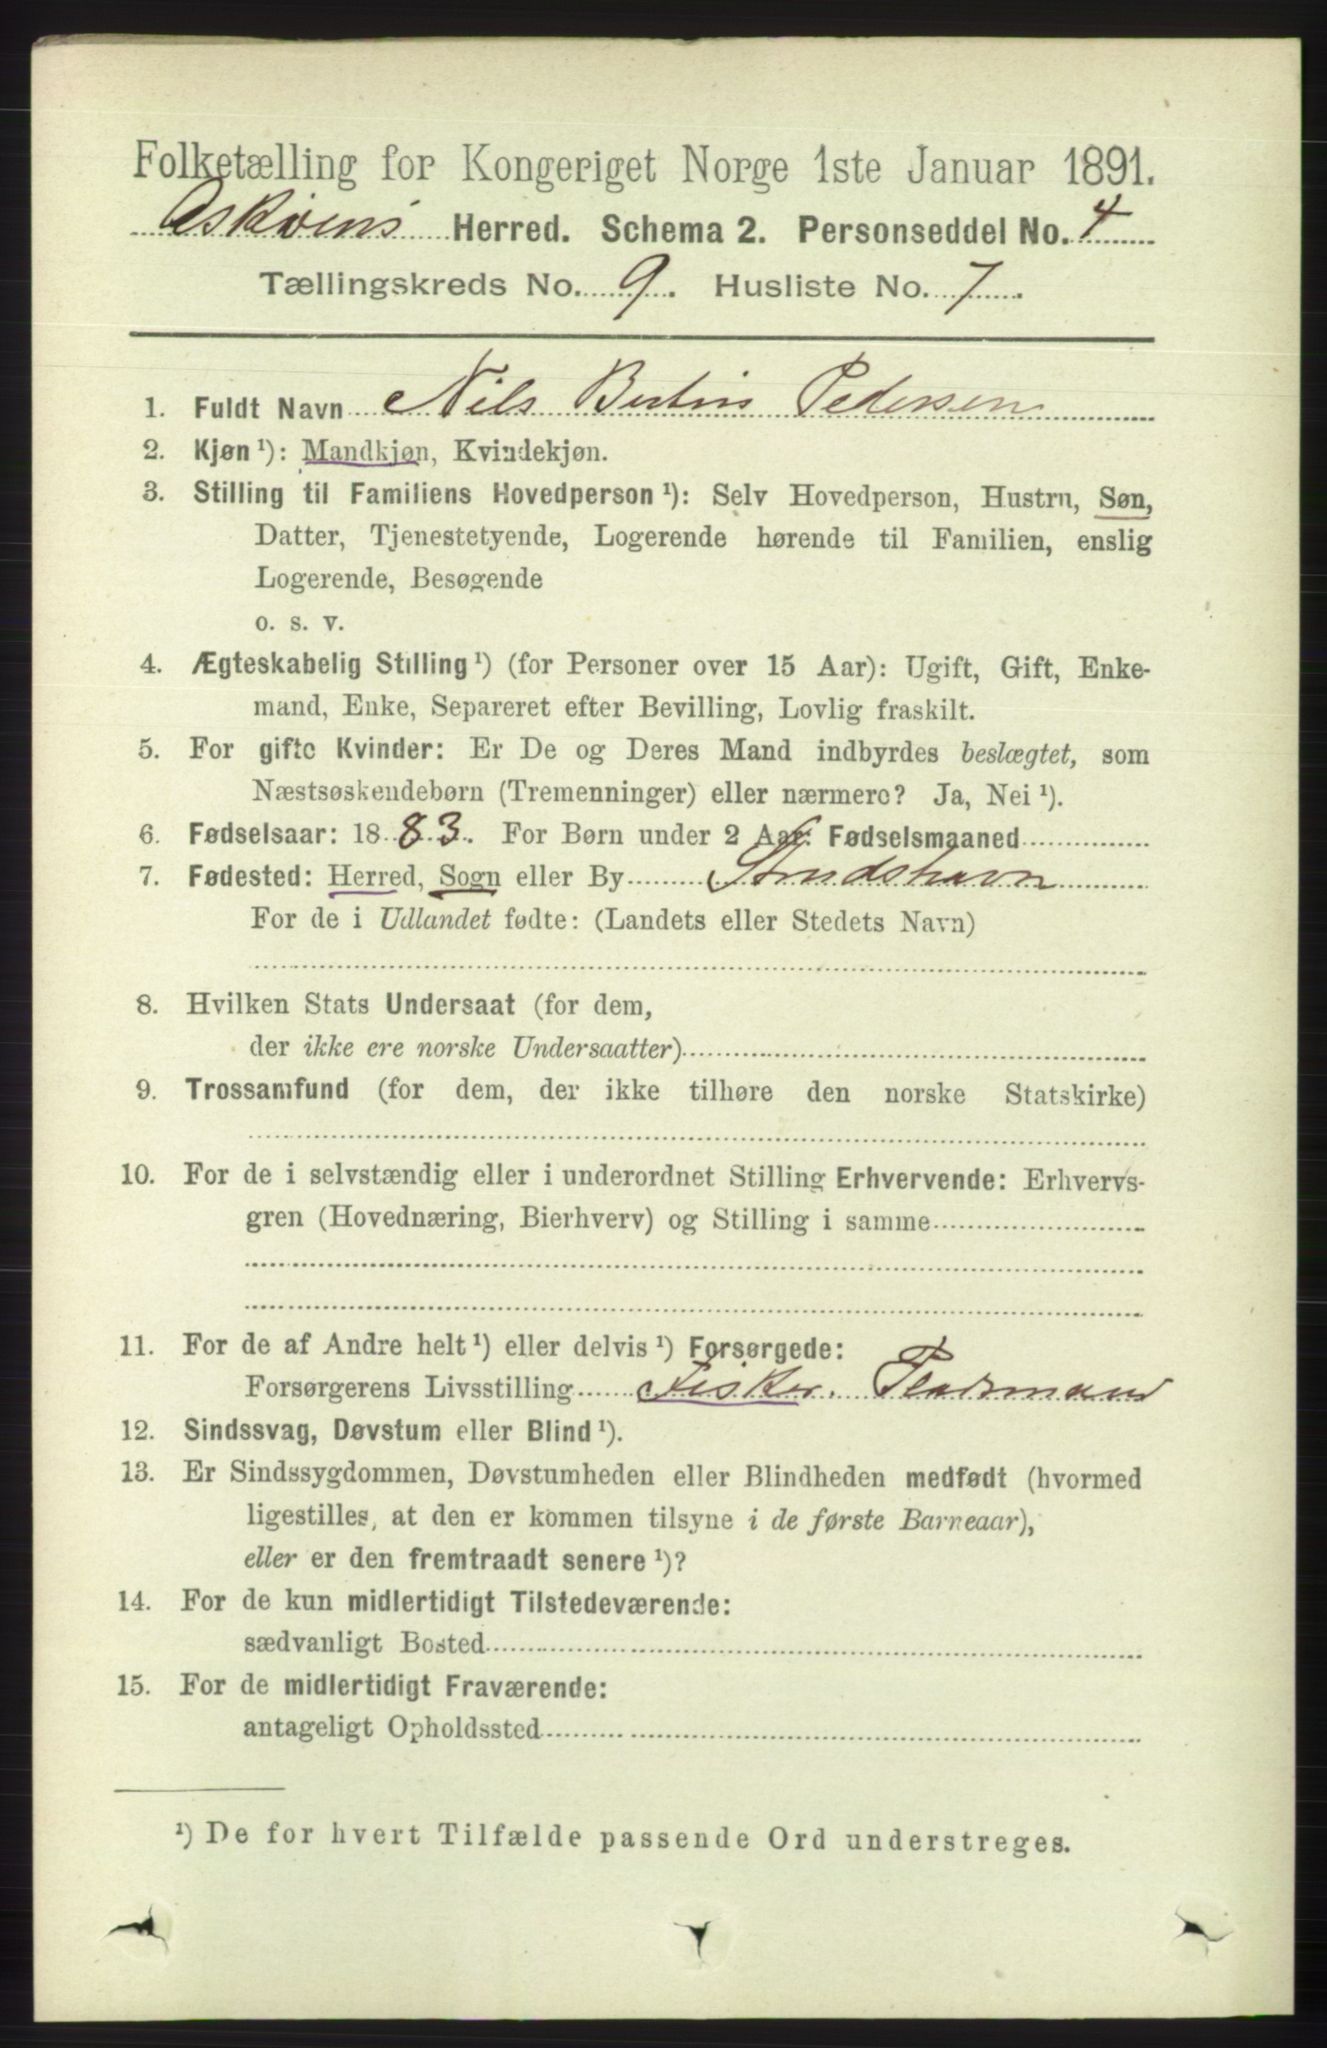 Folketælling for Kongeriget Norge 1ste Januar 1891.
Askvens Herred. Schema 2. Personseddel No. 4
Tællingskreds No. 9. Husliste No. 7
1. Fuldt Navn Nils Bertin Pedersen
2. Kjøn ¹): Mandkjøn, Kvindekjøn.
3. Stilling til Familiens Hovedperson ¹): Selv Hovedperson, Hustru, Søn,
Datter, Tjenestetyende, Logerende hørende til Familien, enslig
Logerende, Besøgende
o. s. v.
4. Ægteskabelig Stilling ¹) (for Personer over 15 Aar): Ugift, Gift, Enke-
mand, Enke, Separeret efter Bevilling, Lovlig fraskilt.
5. For gifte Kvinder: Er De og Deres Mand indbyrdes beslægtet, som
Næstsøskendebørn (Tremenninger) eller nærmere? Ja, Nei ¹).
6. Fødselsaar: 1883. For Børn under 2 Aar: Fødselsmaaned
7. Fødested: Herred, Sogn eller By Strudshavn
For de i Udlandet fødte: (Landets eller Stedets Navn)
8. Hvilken Stats Undersaat (for dem,
der ikke ere norske Undersaatter)
9. Trossamfund (for dem, der ikke tilhøre den norske Statskirke)
10. For de i selvstændig eller i underordnet Stilling Erhvervende: Erhvervs-
gren (Hovednæring, Bierhverv) og Stilling i samme
11. For de af Andre helt ¹) eller delvis ¹) Forsørgede:
Forsørgerens Livsstilling Fisker. Pladsmand
12. Sindssvag, Døvstum eller Blind ¹).
13. Er Sindssygdommen, Døvstumheden eller Blindheden medfødt (hvormed
ligestilles, at den er kommen tilsyne i de første Barneaar),
eller er den fremtraadt senere ¹)?
14. For de kun midlertidigt Tilstedeværende:
sædvanligt Bosted
15. For de midlertidigt Fraværende:
antageligt Opholdssted
¹) De for hvert Tilfælde passende Ord understreges.